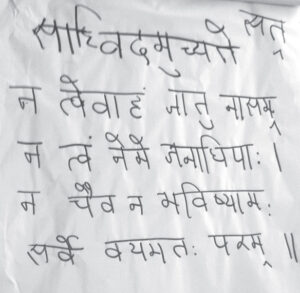 साध्विदमुच्यते
न त्वेवाहं जातु नासम्
न त्वं नेमे जनाधिपाः ।
न चैव न भविष्यामः
सर्वे वयमतः परम् ॥